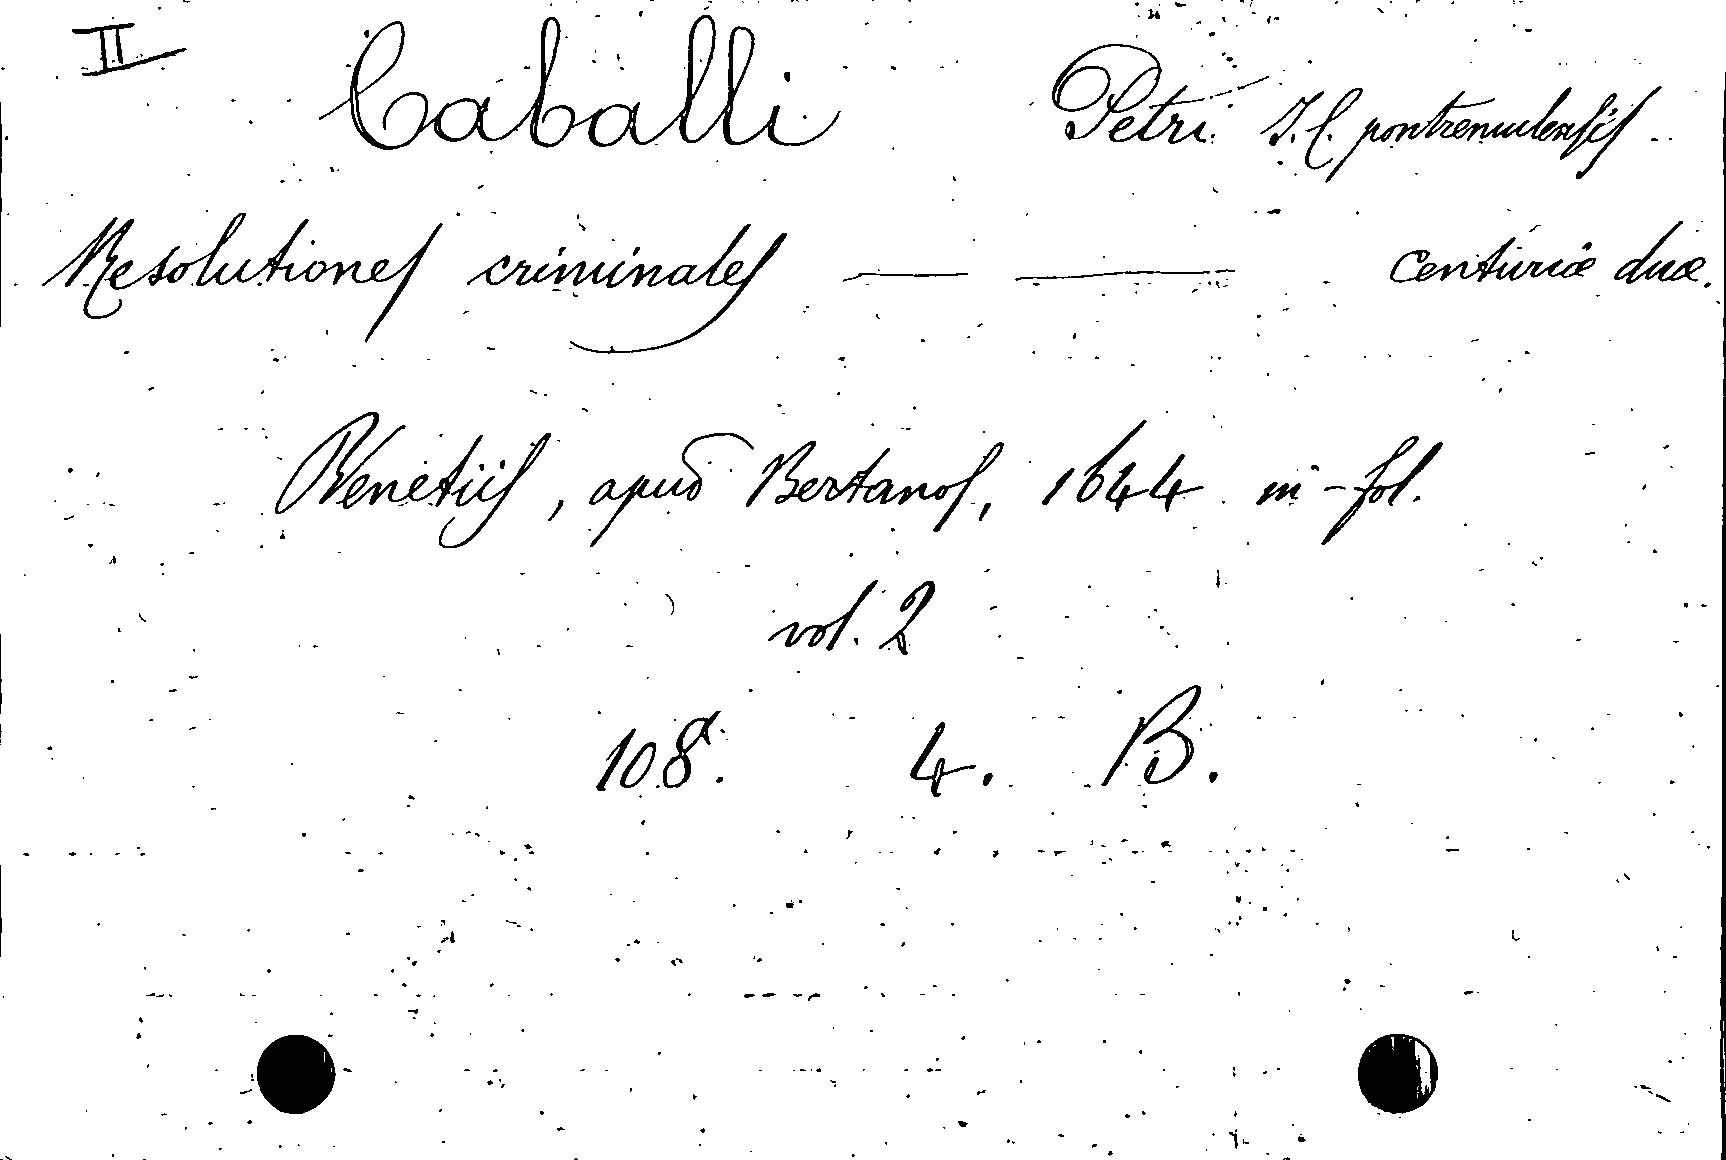 II Caballi Petri J.C. pontremulensis
Resolutiones criminales — — Centuriæ duæ.
Venetiis, apud Bertanos, 1644 in-fol.
vol. 2
108. 4. B.